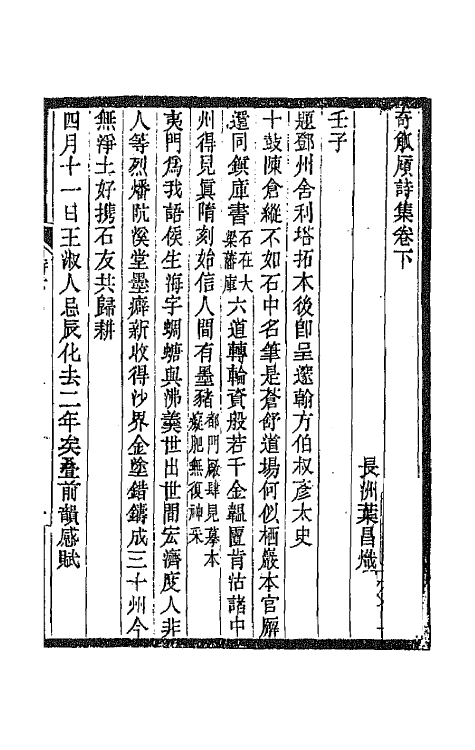 奇觚廎詩集卷下
長洲葉昌熾
壬子
題鄧州舍利塔拓本後卽呈邃翰方伯叔彥太史
十鼓陳倉縱不如石中名筆是蒼舒道場何似栖巖本官廨
還同鎮庫書石在大梁藩庫六道轉輪資般若千金韞匵肯沽諸中
州得見眞隋刻始信人間有墨豬都門廠肆見摹本癡肥無復神采
夷門爲我語侯生海宇蜩螗與沸羹世出世間宏濟度人非
人等烈燔阬傒堂墨癖新收得沙界金塗錯鑄成三十州今
無淨土好攜石友共歸耕
四月十一日王淑人忌辰化去二年矣疊前韻感賦